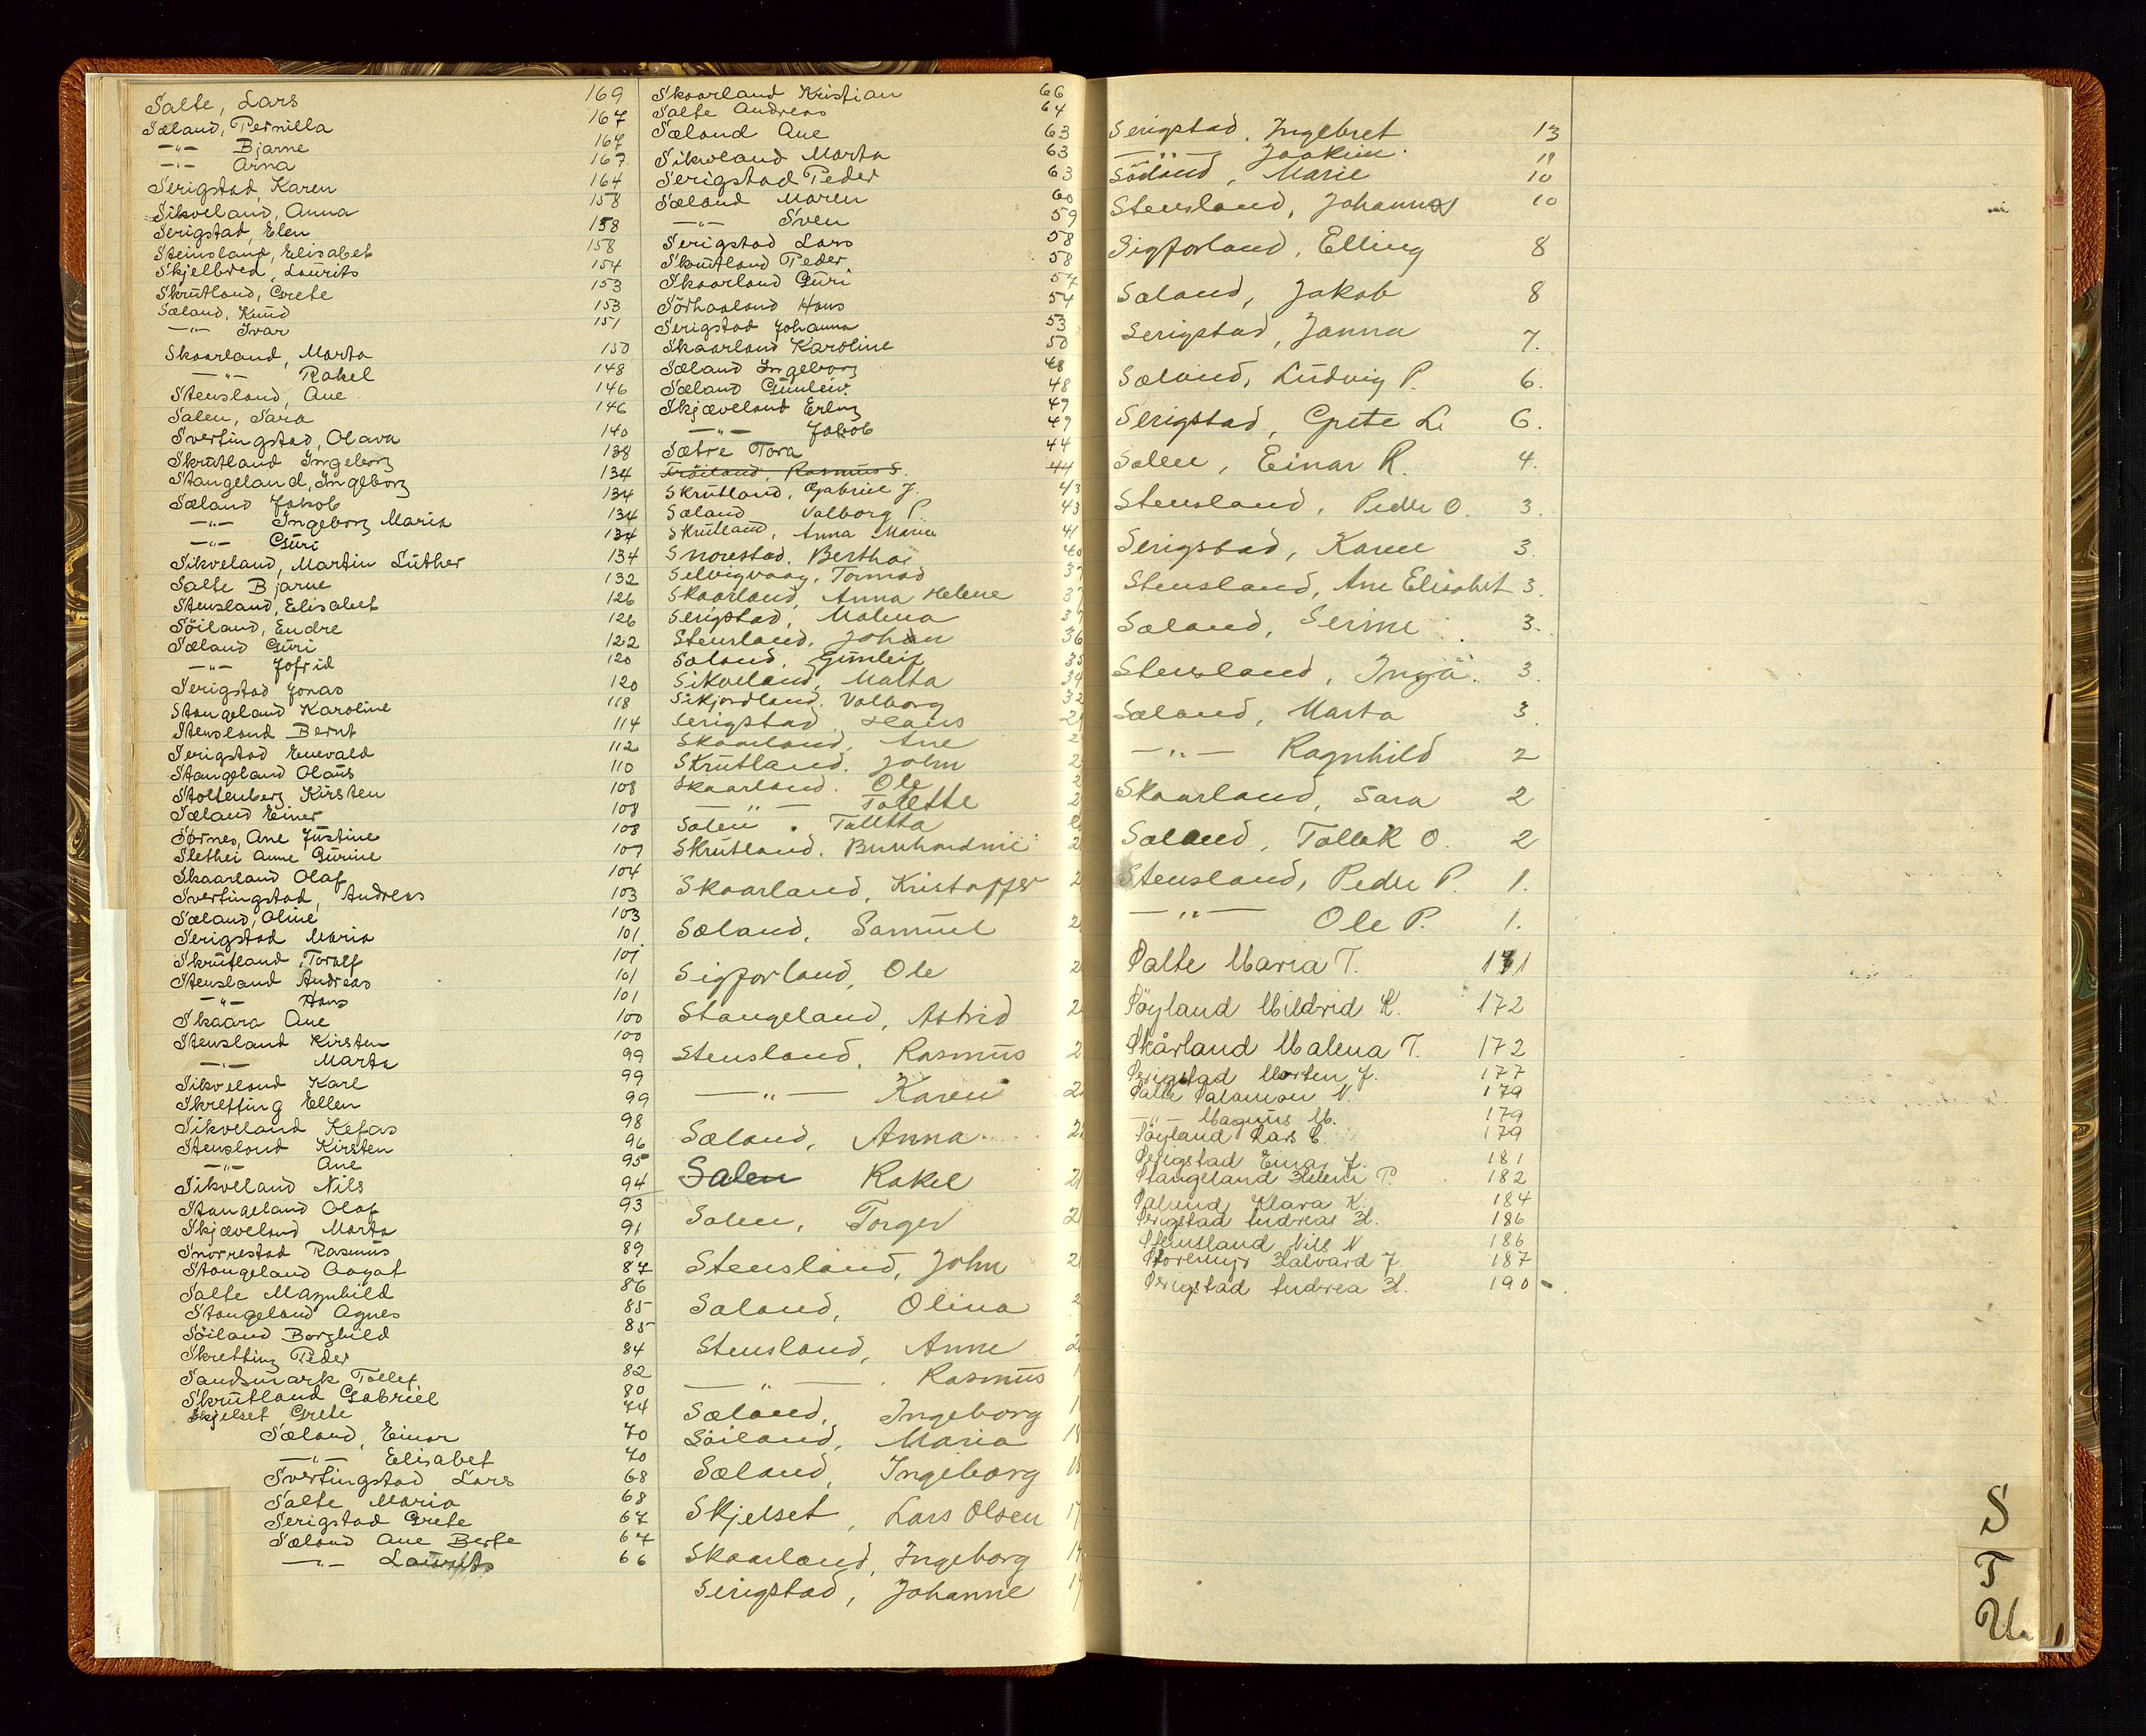 Salte, Lars 169
Sæland, Pernilla 167
—"— Bjarne 167
—"— Arna 167
Serigstad Karen 164
Sikveland, Anna 158
Serigstad, Elen 158
Steinsland, Elisabet 158
Skjelbred, Laurits 154
Skrutland, Grete 153
Sæland, Knud 153
—"— Ivar 151
Skaarland, Marta 150
—"— Rakel 148
Stensland, Ane 146
Salen, Sara 146
Svertingstad, Olava 140
Skrutland Ingeborg 138
Stangeland, Ingeborg 134
Sæland Jakob 134
—"— Ingeborg Maria 134
—"— Guri 134
Sikveland, Martin Luther 134
Salte Bjarne 132
Stensland, Elisabet 126
Söiland, Endre 126
Sæland Guri 122
—"— Jofrid 120
Serigstad Jonas 120
Stangeland Karoline 118
Stensland Bernt 114
Serigstad Enevald 112
Stangeland Olaus 110
Stoltenberg Kirsten 108
Sæland Einer 108
Sørnes, Ane Justine 108
Slethei Anne Gurine 107
Skaarland Olaf 104
Svertingstad, Andreas 103
Sæland, Oline 103
Serigstad Maria 101
Skrutland, Toralf 101
Stensland Andreas 101
—"— Hans 101
Skaara Ane 100
Stensland Kirsten 100
—"— Marta 99
Sikveland Karl 99
Skretting Ellen 99
Sikveland Kefas 98
Stensland Kirsten 96
—"— Ane 95
Sikveland Nils 94
Stangeland Olaf 93
Skjæveland Marta 91
Snorrestad Rasmus 89
Stangeland Aagot 87
Salte Magnhild 86
Stangeland Agnes 85
Söiland Borghild 85
Skretting Peder 84
Sandsmark Tollef 82
Skrutland Gabriel 80
Skjelset Grete 74
Sæland, Einar 70
—"— Elisabet 70
Svertingstad Lars 68
Salte Maria 68
Serigstad Grete 67
Sæland Ane Berte 67
—"— Laurits 66
Skaarland Kristian 66
Salte Andreas 64
Sæland Ane 63
Sikveland Marta 63
Serigstad Peder 63
Sæland Maren 60
—"— Sven 59
Serigstad Lars 58
Skrutland Peder 58
Skaarland Guri 57
Sörhaaland Hans 54
Serigstad Johanna 53
Skaarland Karoline 50
Sæland Ingeborg 48
Sæland Gunleiv. 48
Skjæveland Erling 49
—"— Jakob 49
Sætre Tora 44
Fröiland, Rasmus S. 44
Skrutland, Gabriel J. 43
Sæland Valborg P. 43
Skrutland, Anna Marie 41
Snorestad, Bertha 40
Selvigvaag, Tormod
Skaarland, Anna Helene
Serigstad, Malena
Stensland, Johan 36
Sæland, Gunleif 35
Sikveland, Malta 34
Sikjordland, Valborg 32
Serigstad Hans
Skaarland, Ane
Skrutland, John
Skaarland. Ole
—"— Tolette
Salen. Taletta
Skrutland. Bernhardine
Skaarland, Kristoffer
Sæland, Samuel
Sigforland, Ole
Stangeland, Astrid
Stensland, Rasmus
—"— Karen
Sæland, Anna
Salen Rakel
Salen, Torger
Stensland, John
Sæland, Olina
Stensland, Anne
—"— Rasmus
Sæland, Ingeborg
Söiland, Maria
Sæland, Ingeborg
Skjelset, Lars Olsen
Skaarland, Ingeborg
Serigstad, Johanne
Serigstad, Ingebret 13
—"— Joakim. 11
Södland, Marie 10
Stensland, Johannes 10
Sigforland, Elling 8
Sæland, Jakob 8
Serigstad, Janna 7.
Sæland, Ludvig P. 6.
Serigstad, Grete L. 6.
Salen, Einar R. 4.
Stensland, Peder O. 3.
Serigstad, Karen 3.
Stensland, Ane Elisabet 3.
Sæland, Serine 3.
Stensland, Inga. 3.
Sæland, Marta 3.
—"— Ragnhild 2
Skaarland, Sara 2
Sæland, Tollak O. 2
Stensland, Peder P. 1.
—"— Ole P. 1.
Salte Maria T. 171
Söyland Mildrid K. 172
Skårland Malena T. 172
Serigstad Morten J. 177
Salte Salamon N. 179
—"— Magnus M. 179
Söyland Lars E. 179
Serigstad Einar J. 181
Stangeland Helene P. 182
Sælund Klara K. 184
Serigstad Andreas H. 186
Stensland Nils N 186
Storemyr Halvard J. 187
Serigstad Andrea H. 190
S
T
U